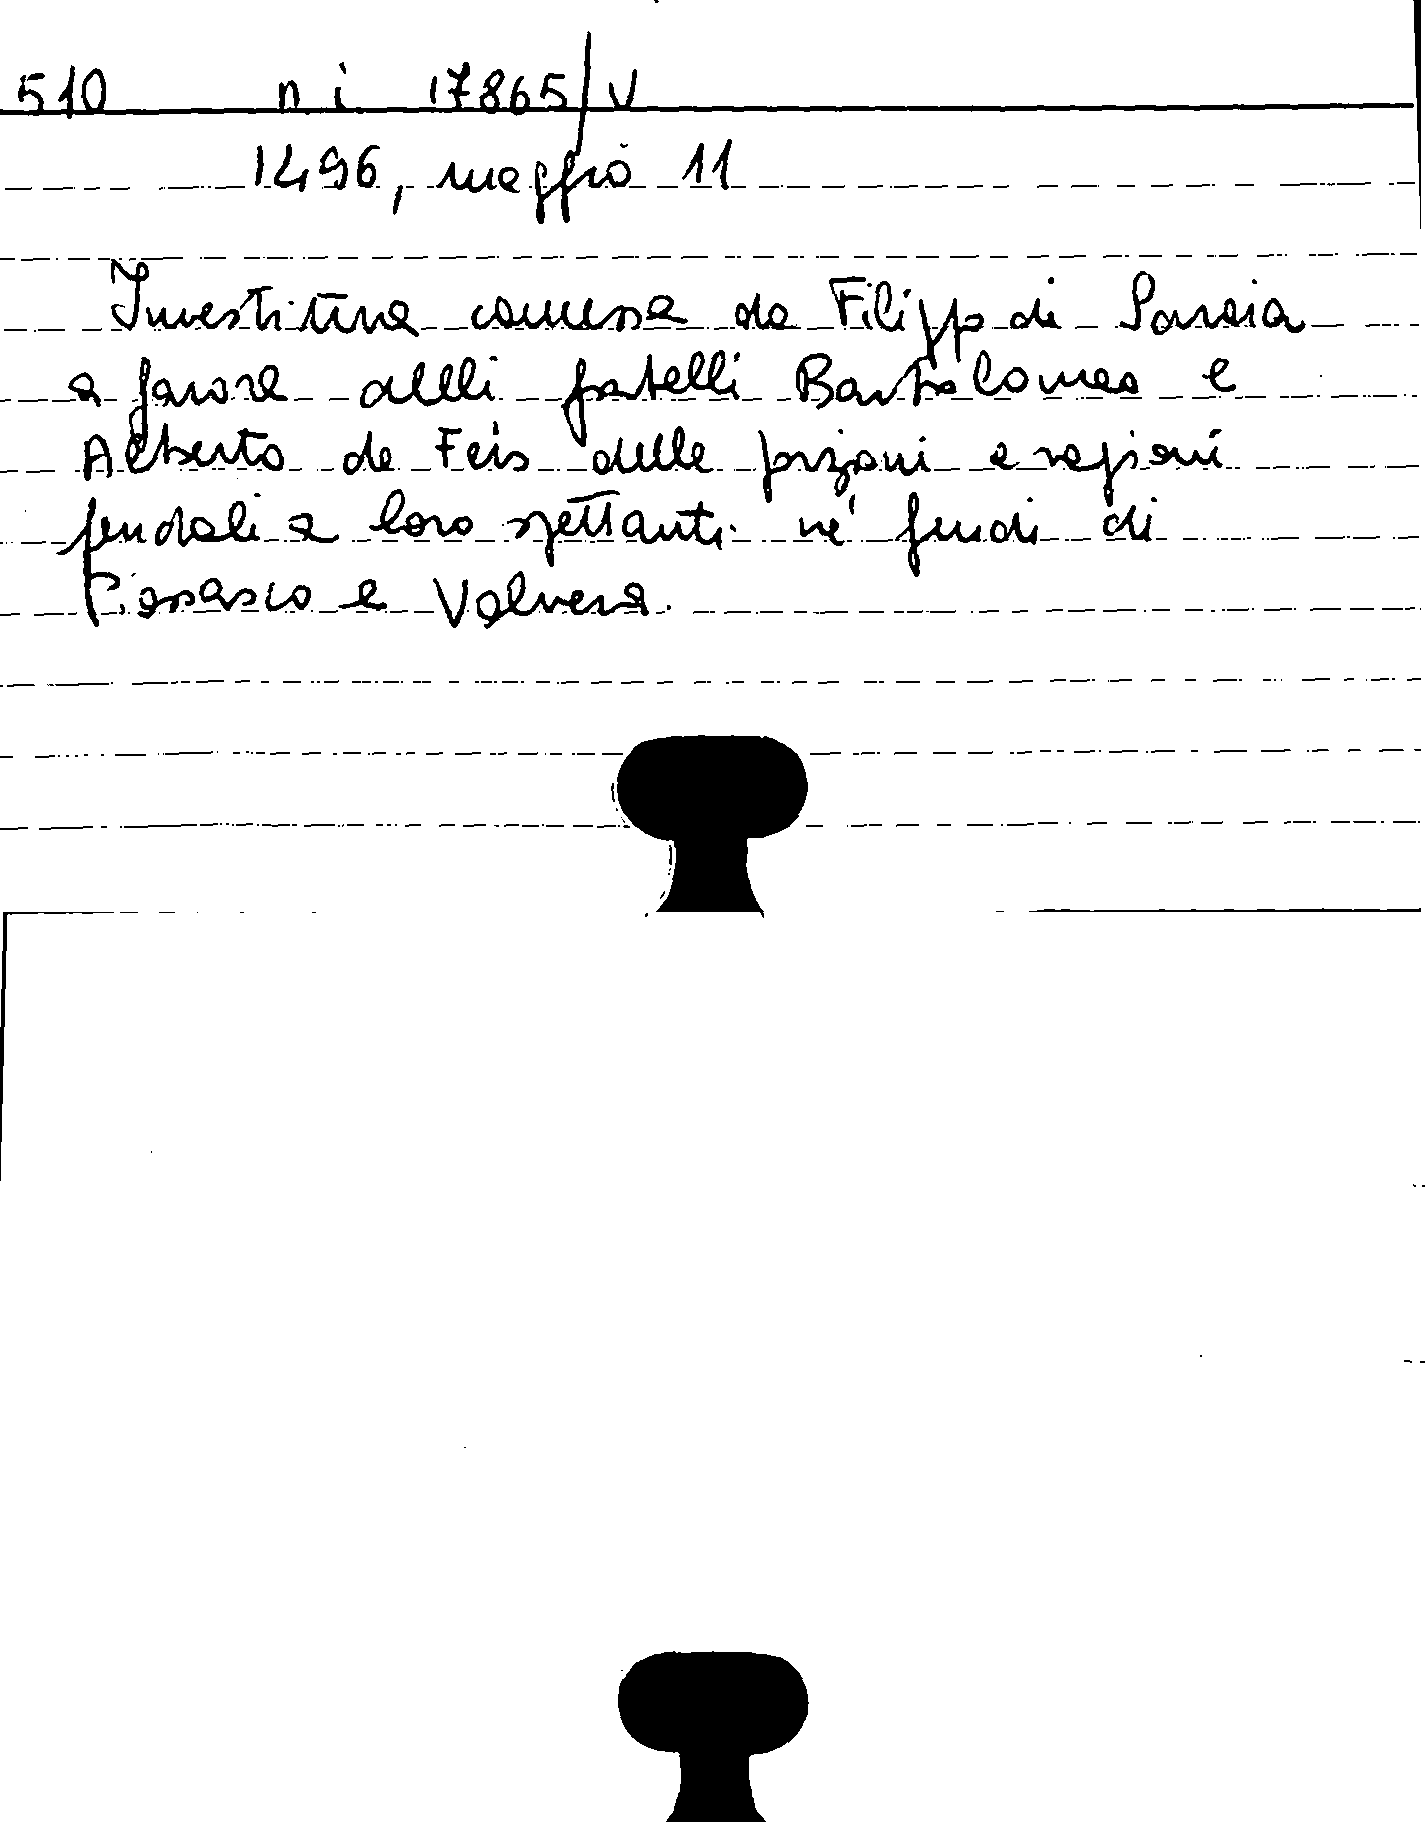 510 n i 17865/V
1496, maggio 11
Investitura concessa da Filippo di Savoia
a favore delli fratelli Bartolomeo e
Alberto de Feis delle porzioni e ragioni
feudali a loro spettanti né feudi di
Piossasco e Volvera.